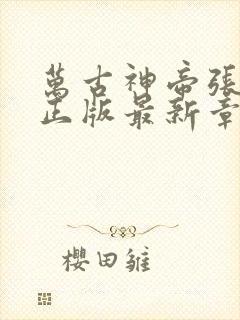 萬古神帝張
正版最新章
櫻田雛